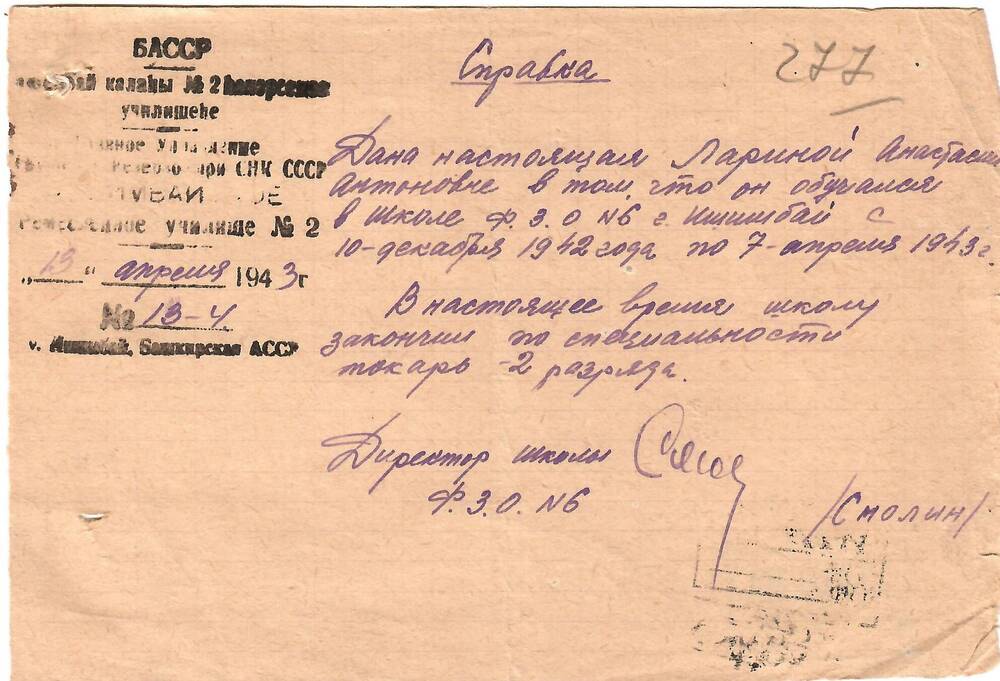 БАССР
калаһы № 2 һөнәрсенек
училищеһе
Главное Управление
при СНК СССР
училище № 2
„13“ апреля 1943 г
№ 13-4
Башкирская АССР
Справка
277
Дана настоящая Лариной Анастасии
Антоновне в том, что он обучался
в школе Ф.З.О N6 г. Ишимбай с
10-декабря 1942 года по 7-апреля 1943 г.
В настоящее время школу
закончил по специальности
токарь -2 разряда.
Директор школы
Ф.З.О. N6
/Смолин/